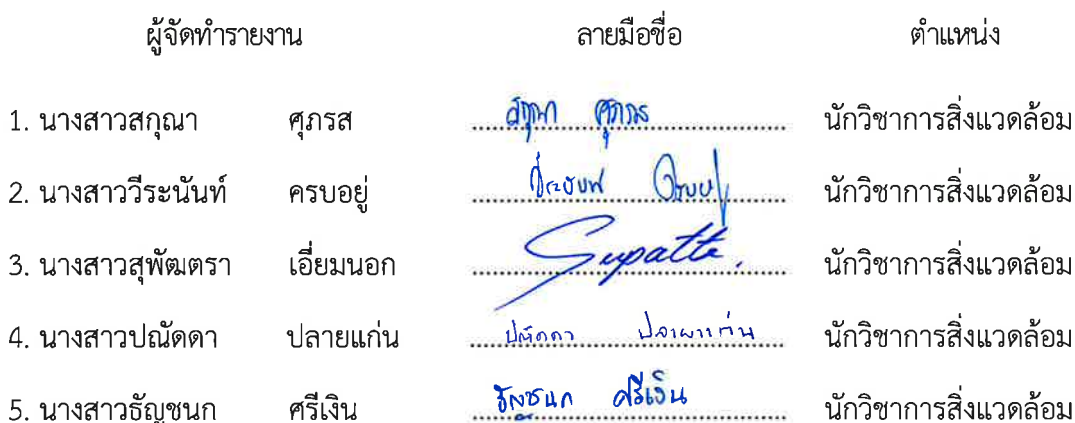 ผู้จัดทำรายงาน ลายมือชื่อ ตำแหน่ง
1. นางสาวสกุณา ศุภรส สกุณา ศุภรส นักวิชาการสิ่งแวดล้อม
2. นางสาววีระนันท์ ครบอยู่ วีระนันท์ ครบอยู่ นักวิชาการสิ่งแวดล้อม
3. นางสาวสุพัฒตรา เอี่ยมนอก Supatta. นักวิชาการสิ่งแวดล้อม
4. นางสาวปณัดดา ปลายแก่น ปณัดดา ปลายแก่น นักวิชาการสิ่งแวดล้อม
5. นางสาวธัญชนก ศรีเงิน ธัญชนก ศรีเงิน นักวิชาการสิ่งแวดล้อม